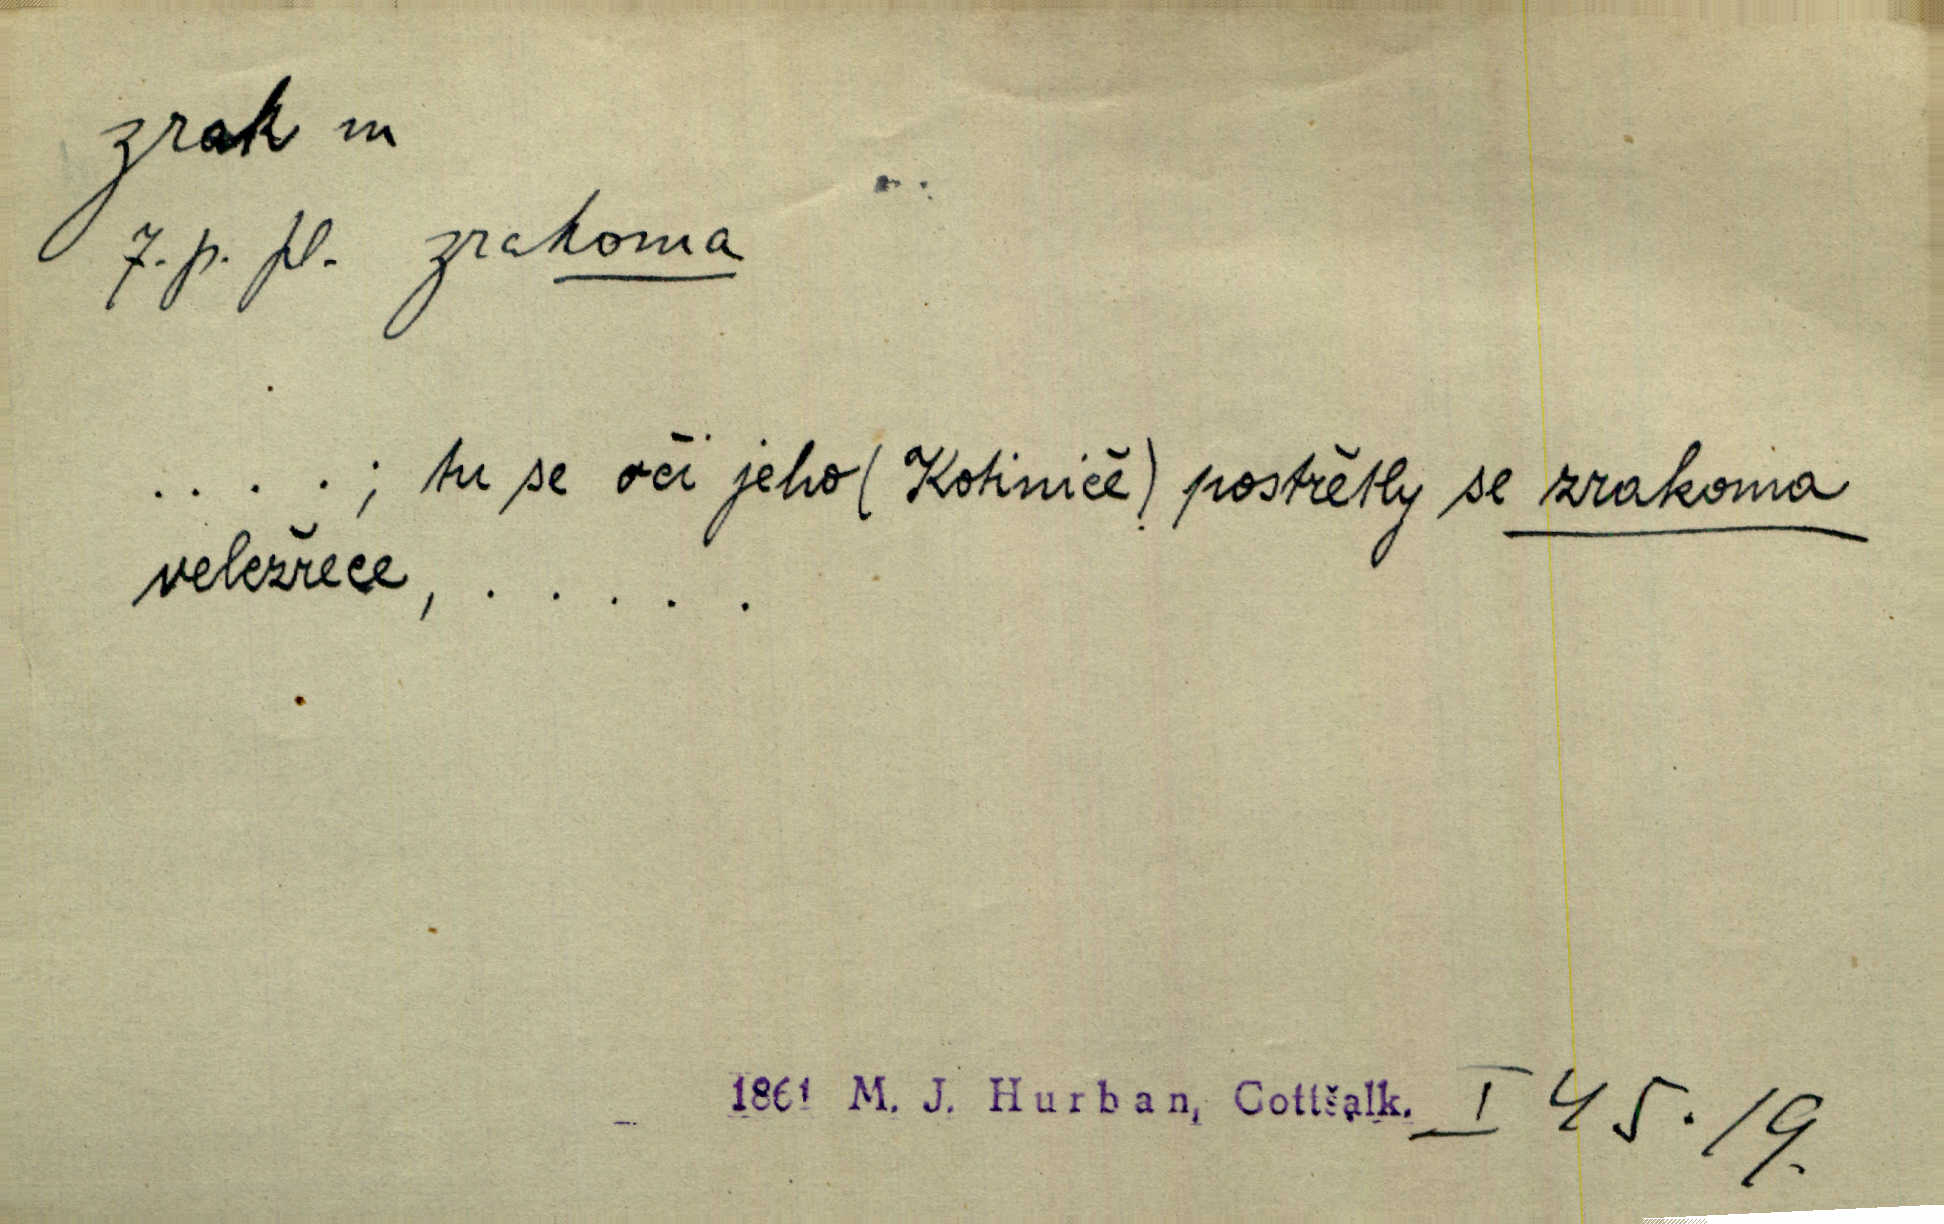 zrak m
7. p. pl. zrakoma
. . . . ; tu se oči jeho (Kotiniče) postřetly se zrakoma
veležřece, . . . . .
1861 M. J. Hurban, Gottšalk. I 45. 19.